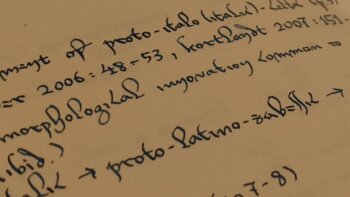 of proto-italo (italic) -
2006: 48-53, Kortlandt 2007: 151-
morphological innovation common to
ibid.)
→ proto-latino-sabellic →
7-8)